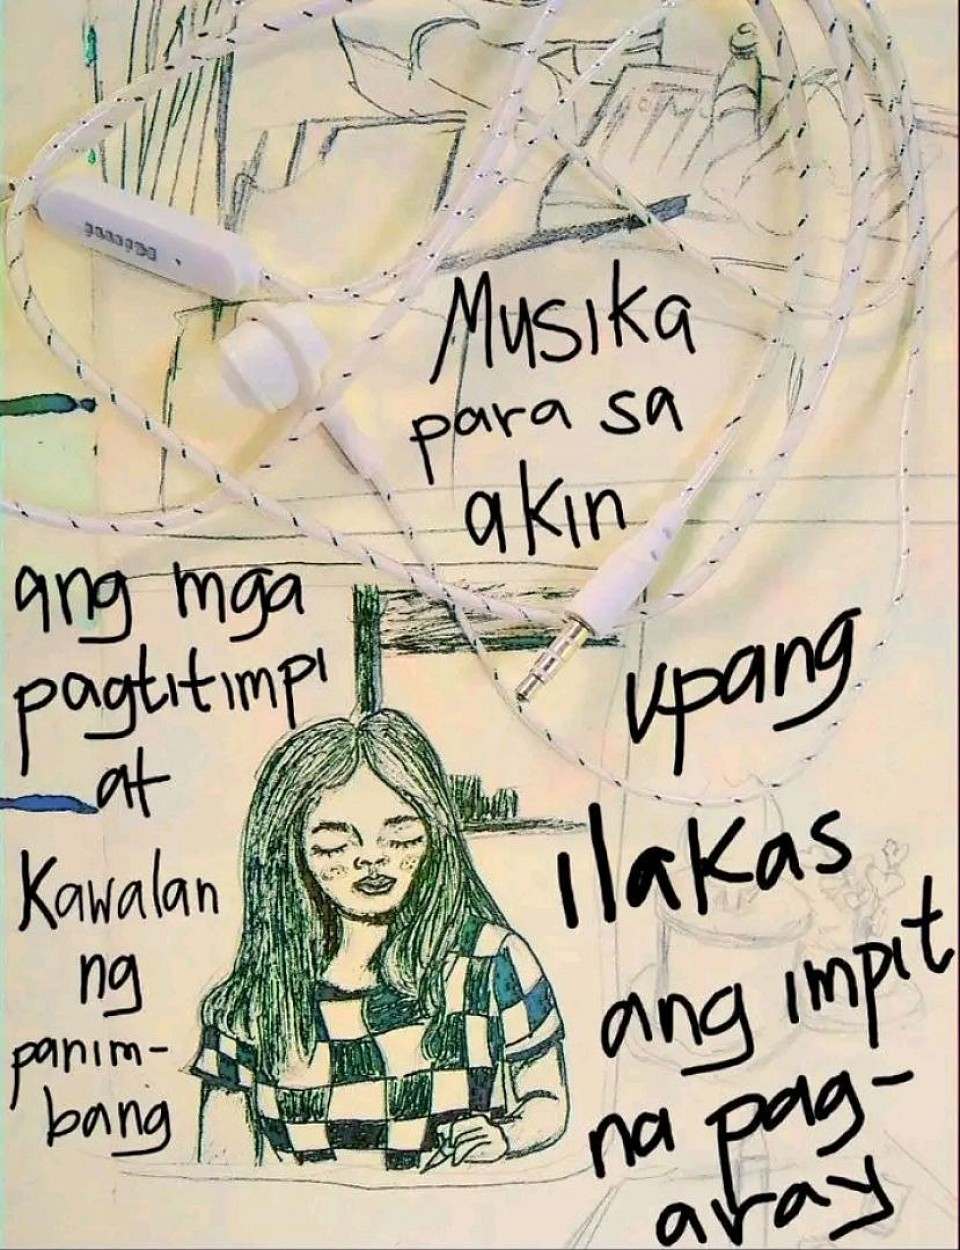 Musika
para sa
akin
ang mga
pagtitimpi
at
Kawalan
ng
panim-
bang
upang
ilakas
ang impit
na pag-
aray